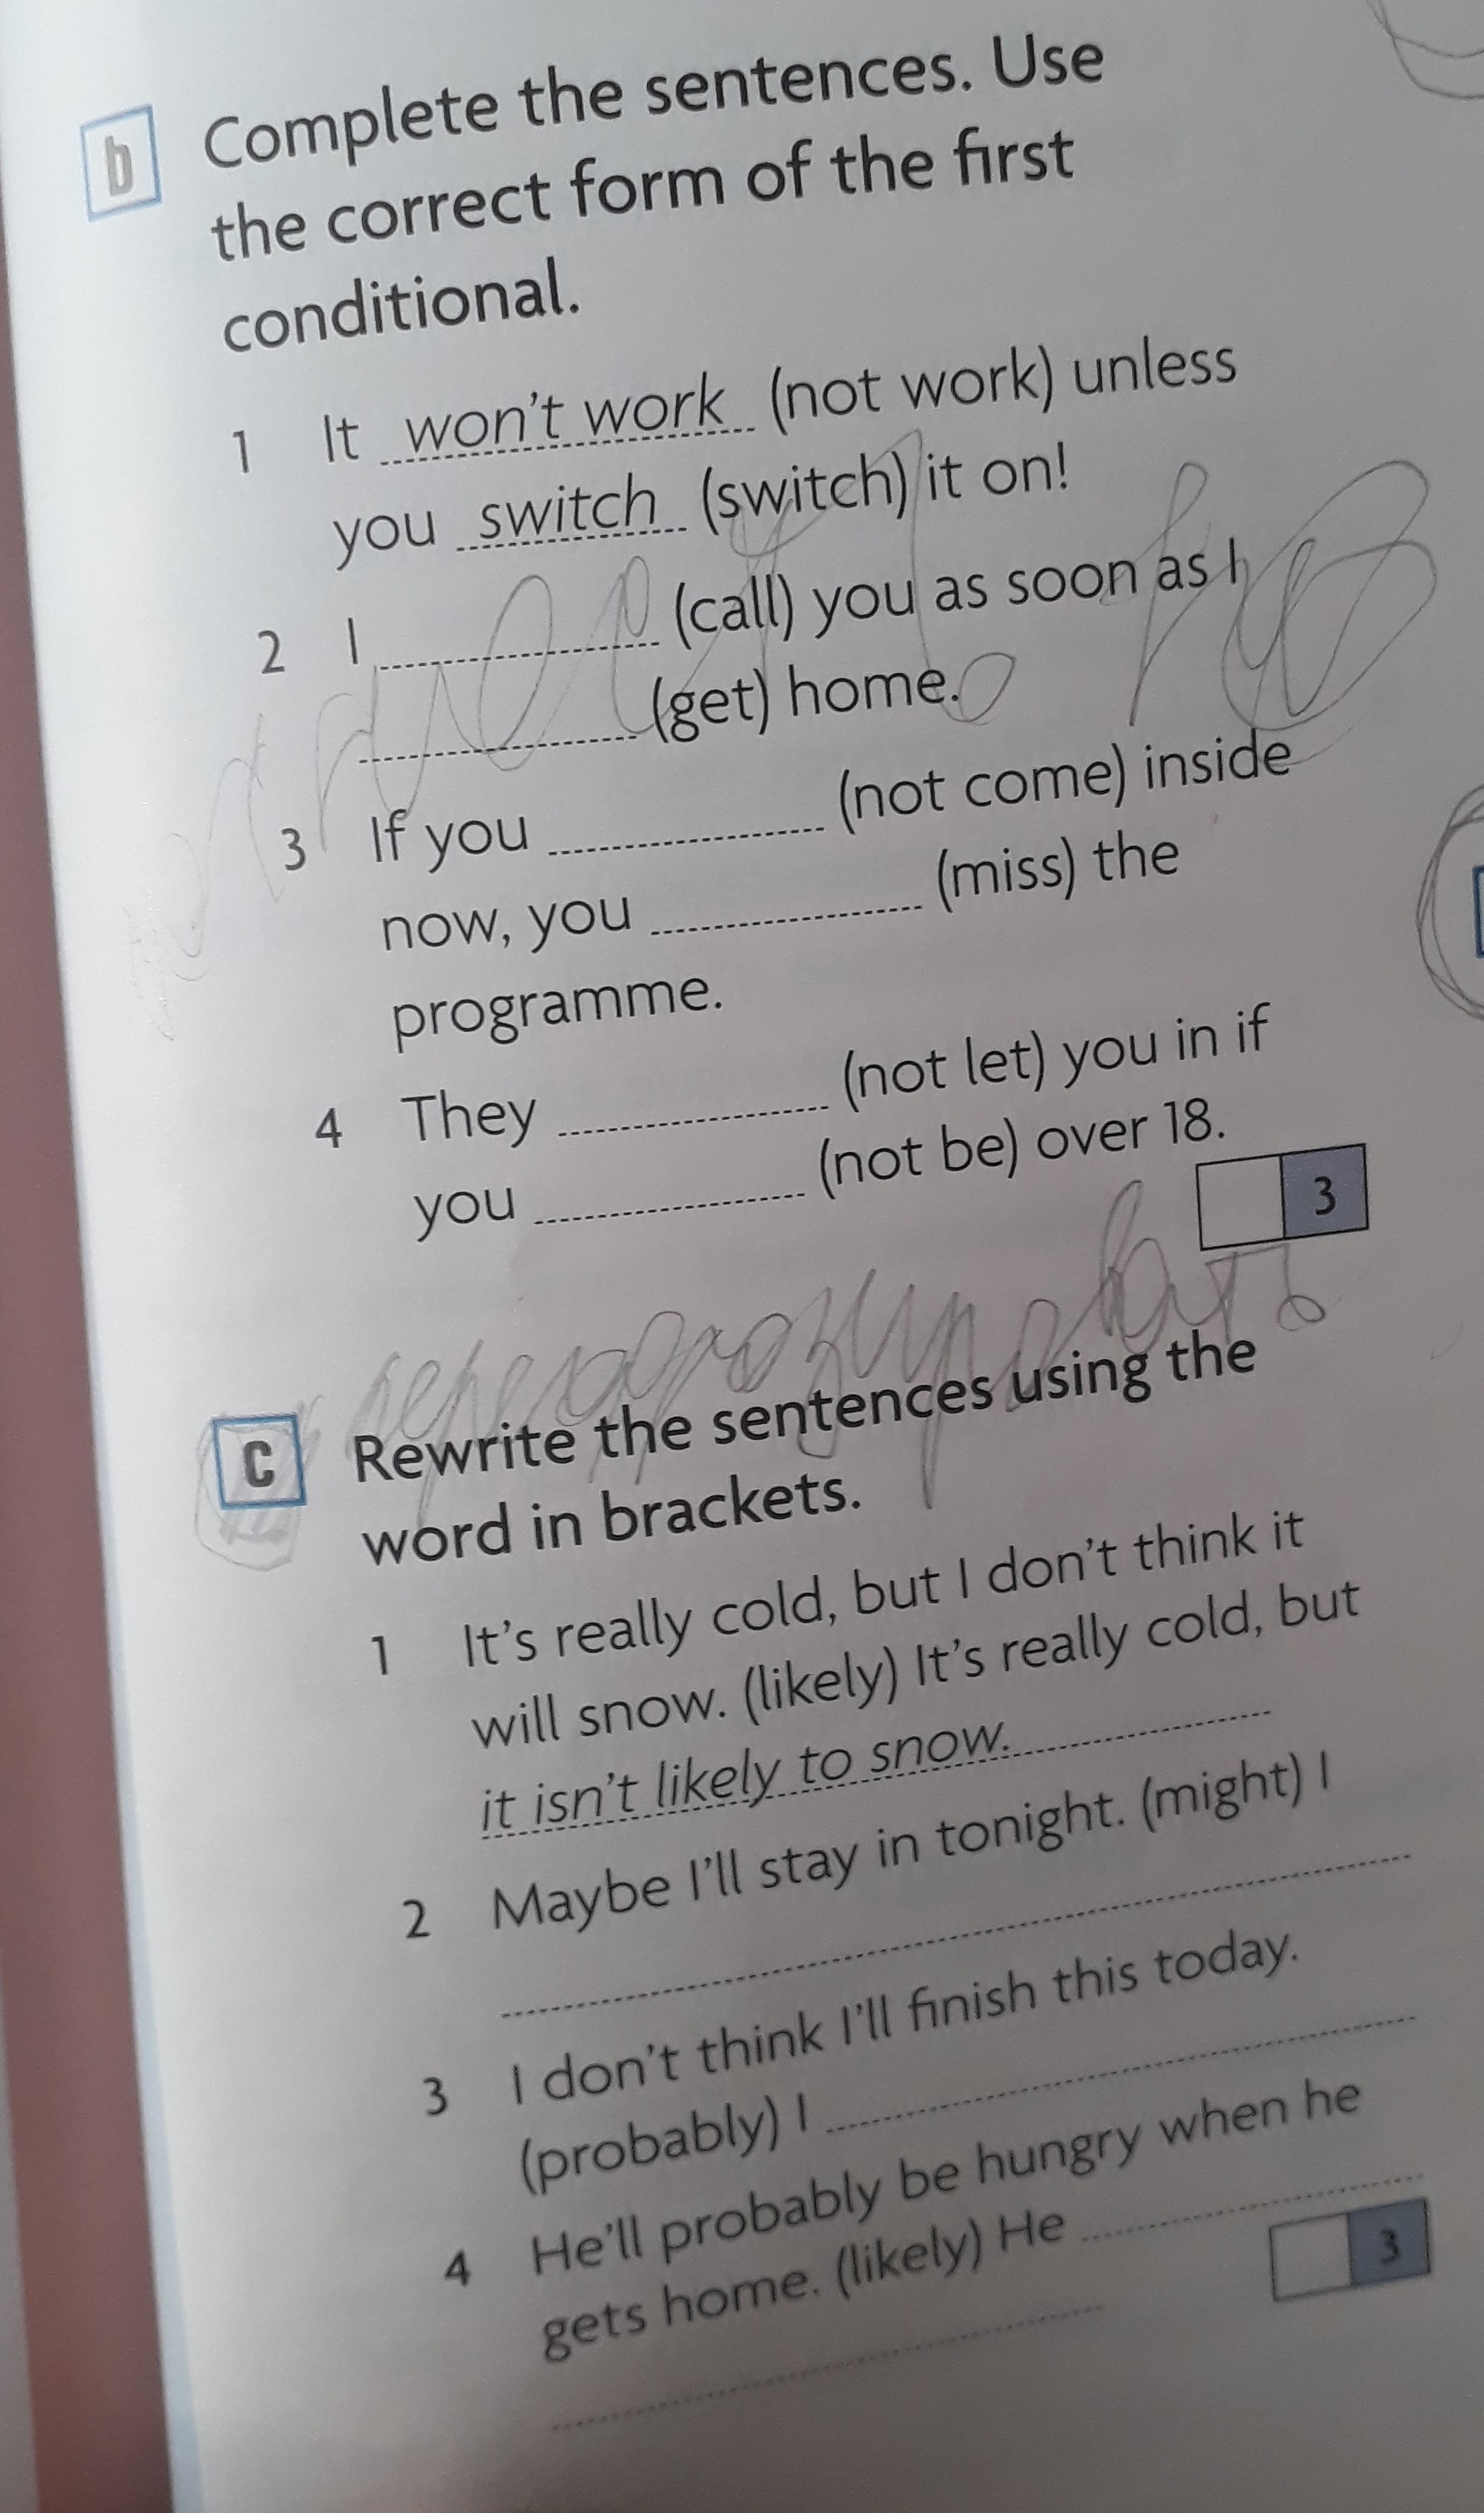 b Complete the sentences. Use
the correct form of the first
conditional.
1 It won't work (not work) unless
you switch (switch) it on!
2 I (call) you as soon as I
(get) home.
3 If you (not come) inside
now, you (miss) the
programme.
4 They (not let) you in if
you (not be) over 18.
3
c Rewrite the sentences using the
word in brackets.
1 It's really cold, but I don't think it
will snow. (likely) It's really cold, but
it isn't likely to snow.
2 Maybe I'll stay in tonight. (might) I
3 I don't think I'll finish this today.
(probably) I
4 He'll probably be hungry when he
gets home. (likely) He
3